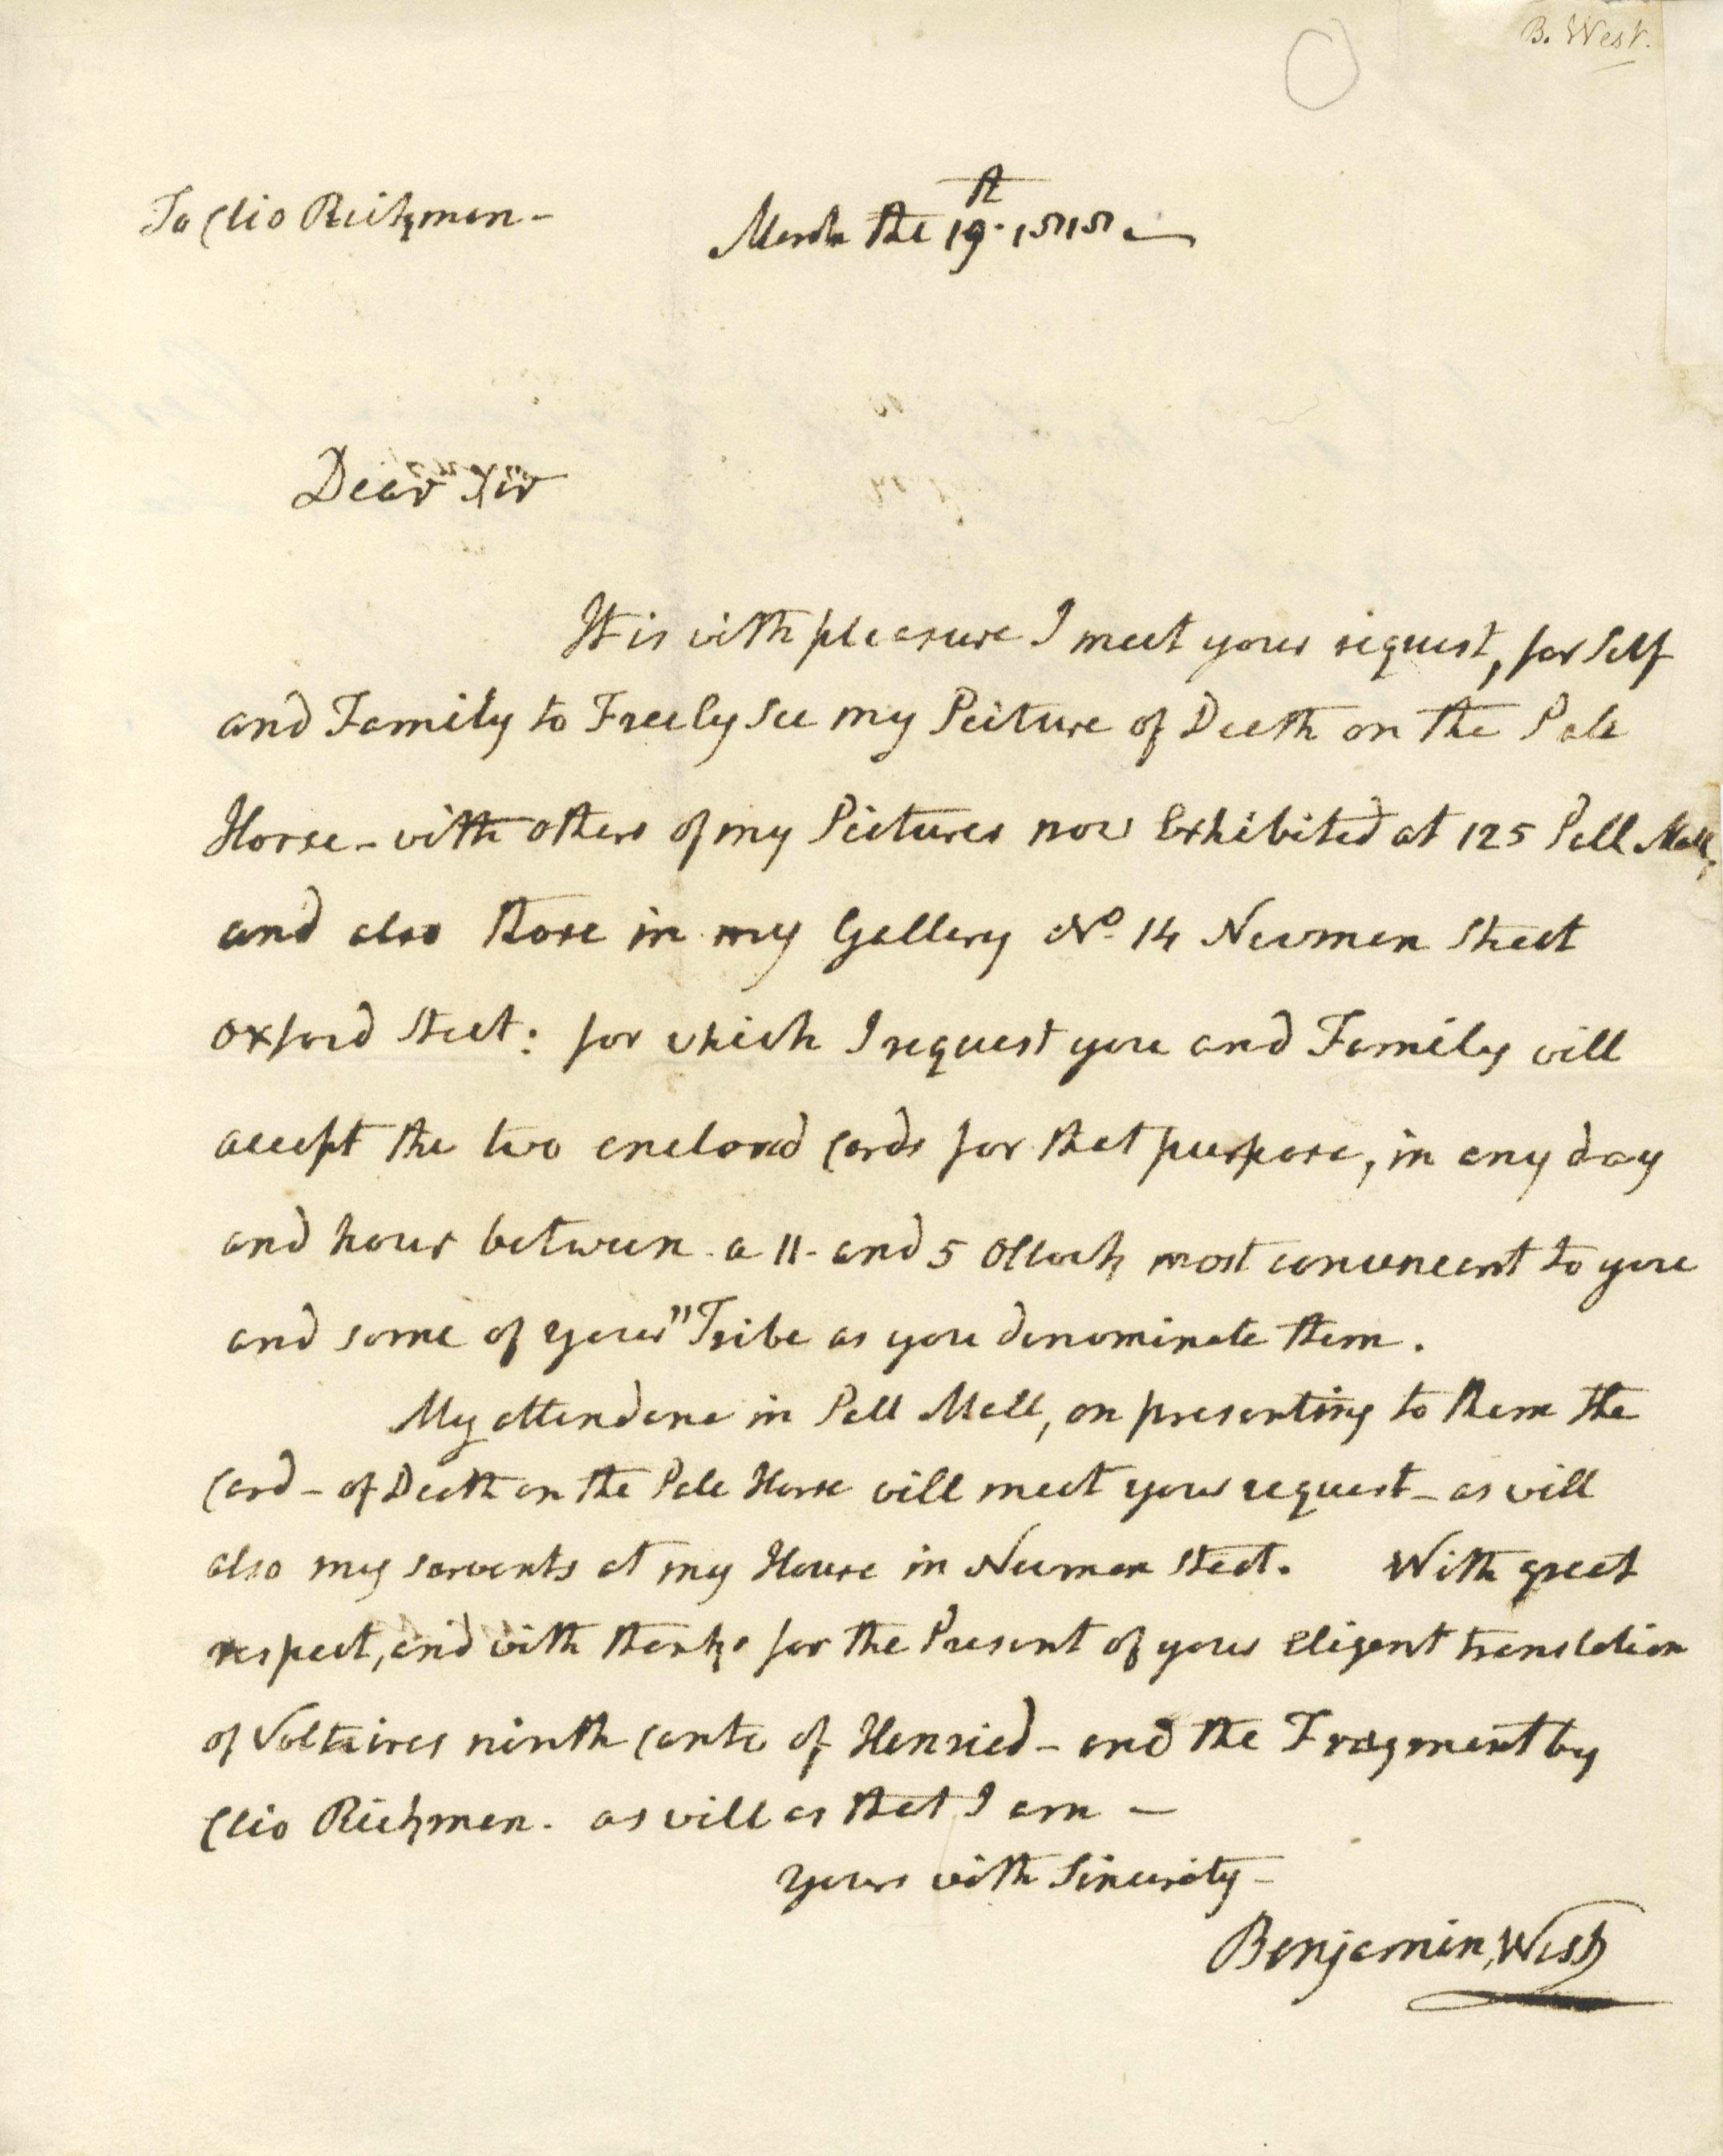 B. West.
To Clio Rickman -
March the 19th. 1818.
Dear Sir
It is with pleasure I meet your request, for self
and Family to Freely see my Picture of Death on the Pale
Horse - with others of my Pictures now Exhibited at 125 Pall Mall,
and also those in my Gallery No. 14 Newman Street
Oxford Street: for which I request you and Family will
accept the two enclosed Cards for that purpose, in any day
and hour between a 11 - and 5 OClock most convenient to you
and some of your "Tribe as you denominate them.
My attendane in Pall Mall, on presenting to them the
Card - of Death on the Pale Horse will meet your request - as will
also my servents at my House in Newman Street. With great
respect, and with thanks for the Present of your eligent translation
of Voltaires ninth Canto of Henried - and the Fragment by
Clio Rickman. as will as that I am -
Yours with Sincerity -
Benjamin West